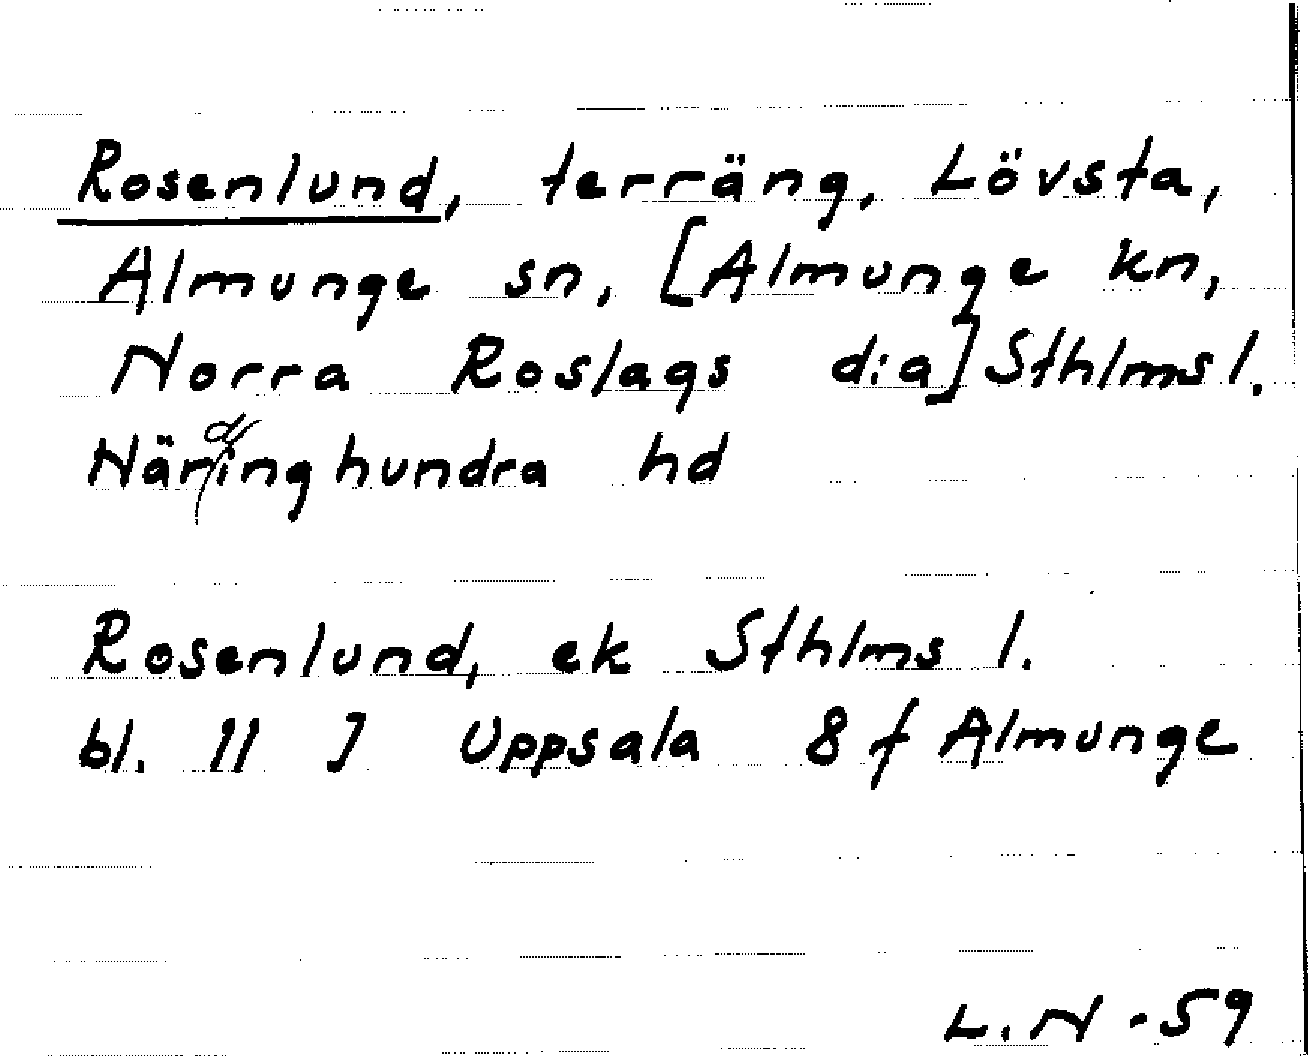 Rosenlund, terräng, Lövsta,
Almunge sn, [Almunge kn,
Norra Roslags dia] Sthlms l.
Närdinghundra hd
Rosenlund, ek Sthlms l.
bl. 11 J Uppsala 8 f Almunge
L. N - 59